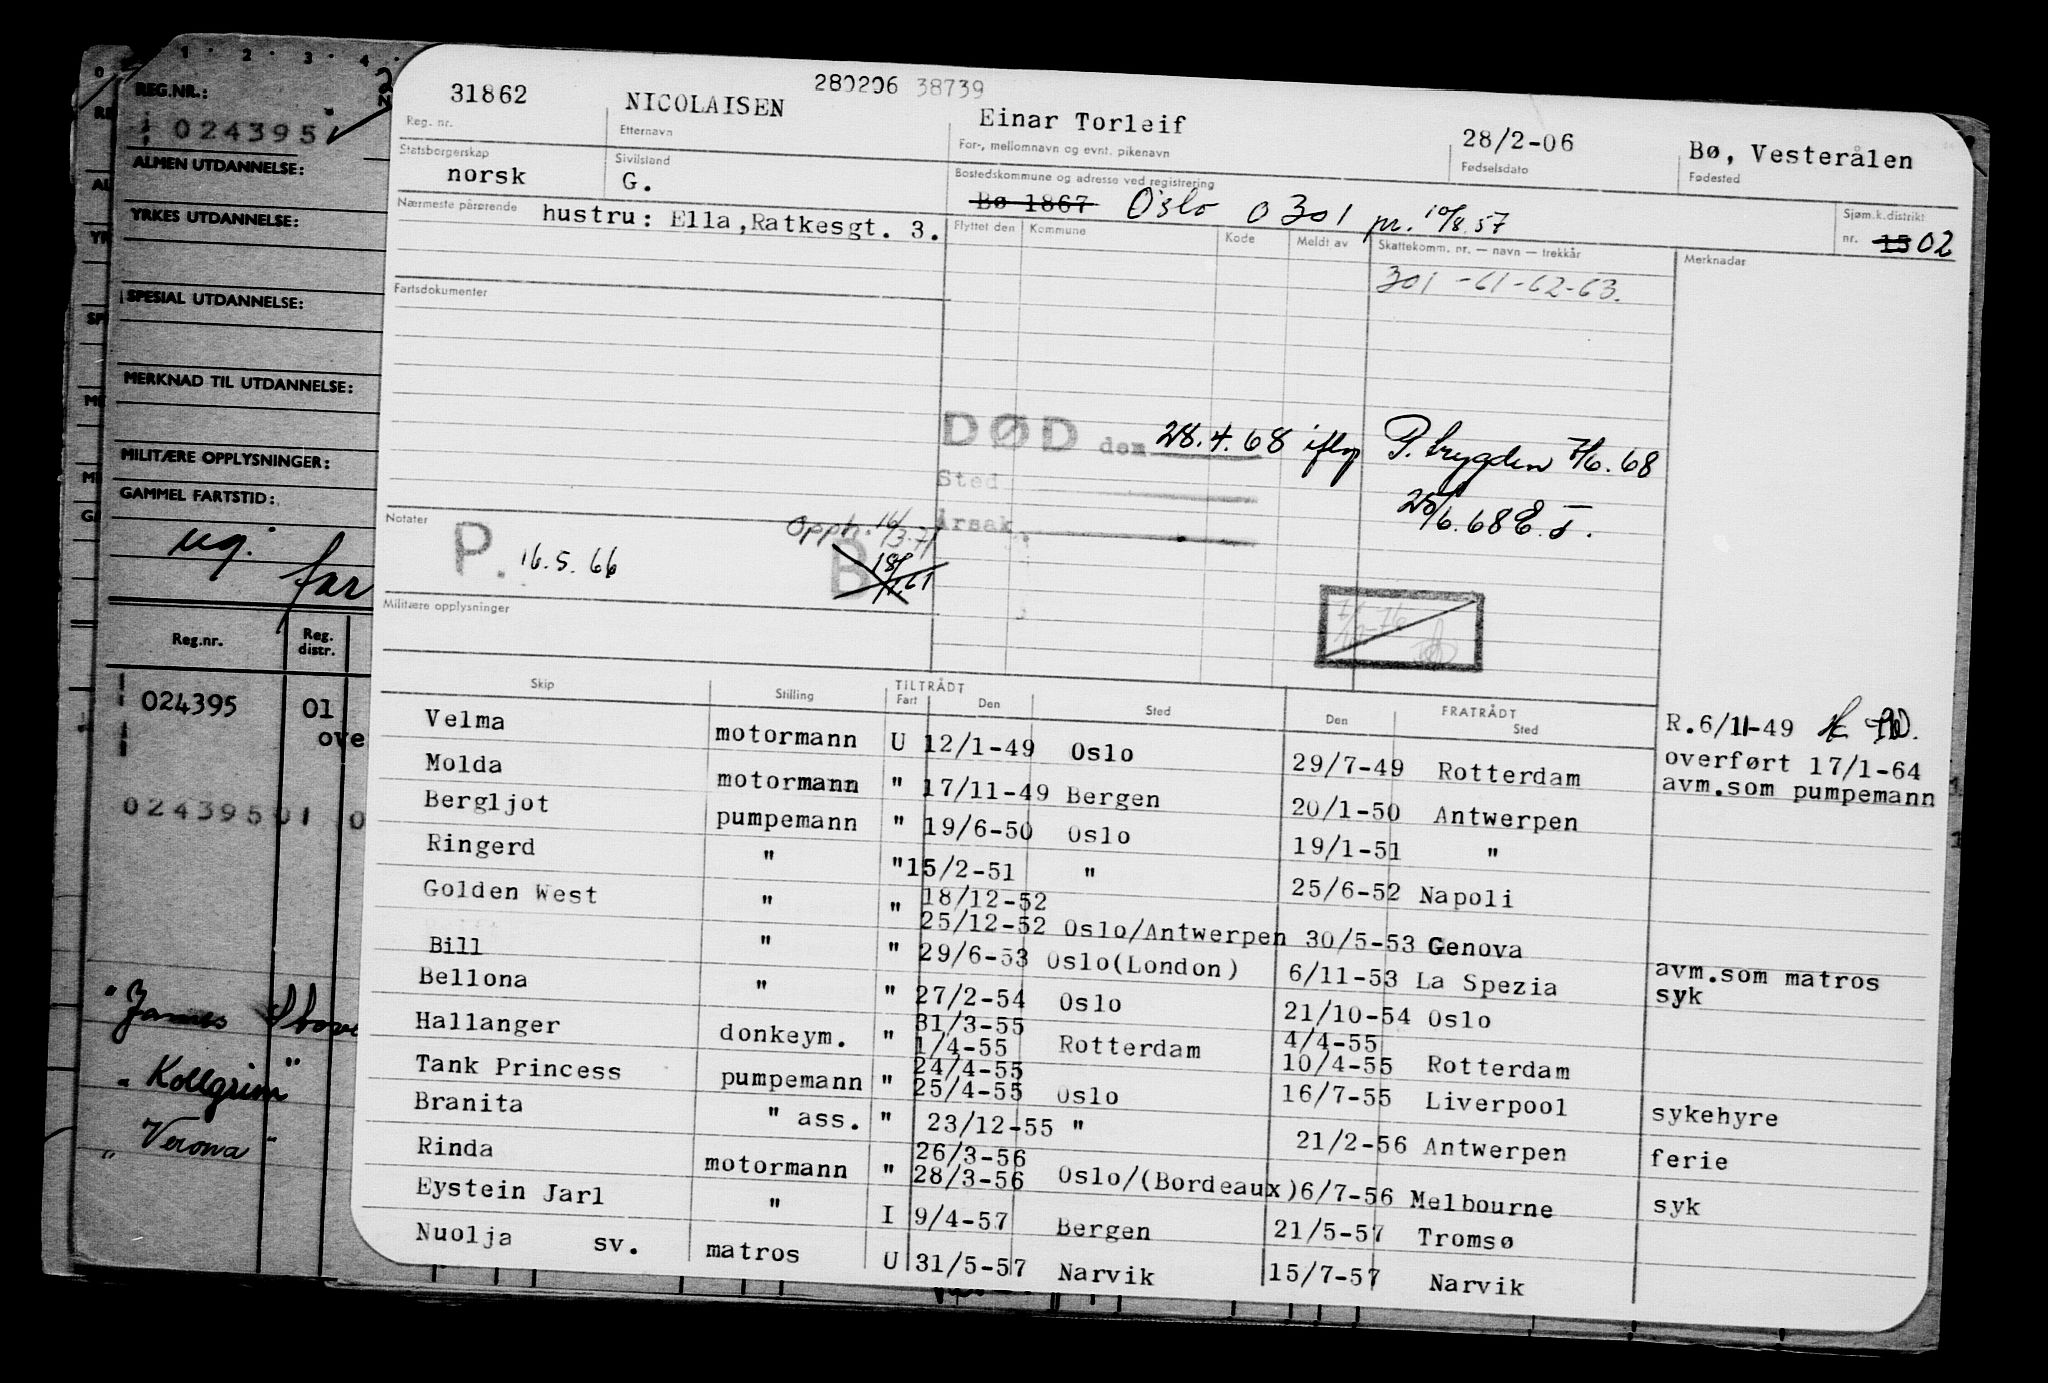 REG.NR.:
024395
ALMEN UTDANNELSE:
YRKES UTDANNELSE:
SPESIAL UTDANNELSE:
MERKNAD TIL UTDANNELSE:
MILITÆRE OPPLYSNINGER:
GAMMEL FARTSTID:
ug. far
Reg.nr. Reg. distr.
024395 01
ove
02439501 0
"James Stove
"Kollgrim"
"Verona"
280206 38739
31862 NICOLAISEN Einar Torleif 28/2-06 Bø, Vesterålen
Reg. nr. Etternavn For-, mellomnavn og evnt. pikenavn Fødselsdato Fødested
Statsborgerskap Sivilstand Bostedskommune og adresse ved registrering Sjøm.k.distrikt
norsk G. Bø 1867 Oslo 0301 pr. 10/8.57 nr. 15 02
Nærmeste pårørende hustru: Ella, Ratkesgt. 3. Flyttet den Kommune Kode Meldt av Skattekomm. nr. — navn — trekkår Merknader
301 -61-62-63.
Fartsdokumenter
DØD den 28.4.68 iflg P.trygden 7/6.68
Sted
20/6.68 E.T.
Årsak
Notater
P. 16.5.66 Opph. 16/3.71
B 18/1.61
Militære opplysninger
Skip Stilling TILTRÅDT Fart Den Sted FRATRÅDT Den Sted
Velma motormann U 12/1-49 Oslo 29/7-49 Rotterdam R.6/11-49
Molda motormann " 17/11-49 Bergen 20/1-50 Antwerpen overført 17/1-64
avm.som pumpemann
Bergljot pumpemann " 19/6-50 Oslo 19/1-51 "
Ringerd " " 15/2-51 " 25/6-52 Napoli
Golden West " " 18/12-52
25/12-52 Oslo/Antwerpen 30/5-53 Genova
Bill " " 29/6-53 Oslo(London) 6/11-53 La Spezia avm.som matros
syk
Bellona " " 27/2-54 Oslo 21/10-54 Oslo
Hallanger donkeym. " 31/3-55 4/4-55
1/4-55 Rotterdam 10/4-55 Rotterdam
Tank Princess pumpemann " 24/4-55
25/4-55 Oslo 16/7-55 Liverpool sykehyre
Branita " ass. " 23/12-55 " 21/2-56 Antwerpen ferie
Rinda motormann " 26/3-56
28/3-56 Oslo/(Bordeaux) 6/7-56 Melbourne syk
Eystein Jarl " I 9/4-57 Bergen 21/5-57 Tromsø
Nuolja sv. matros U 31/5-57 Narvik 15/7-57 Narvik